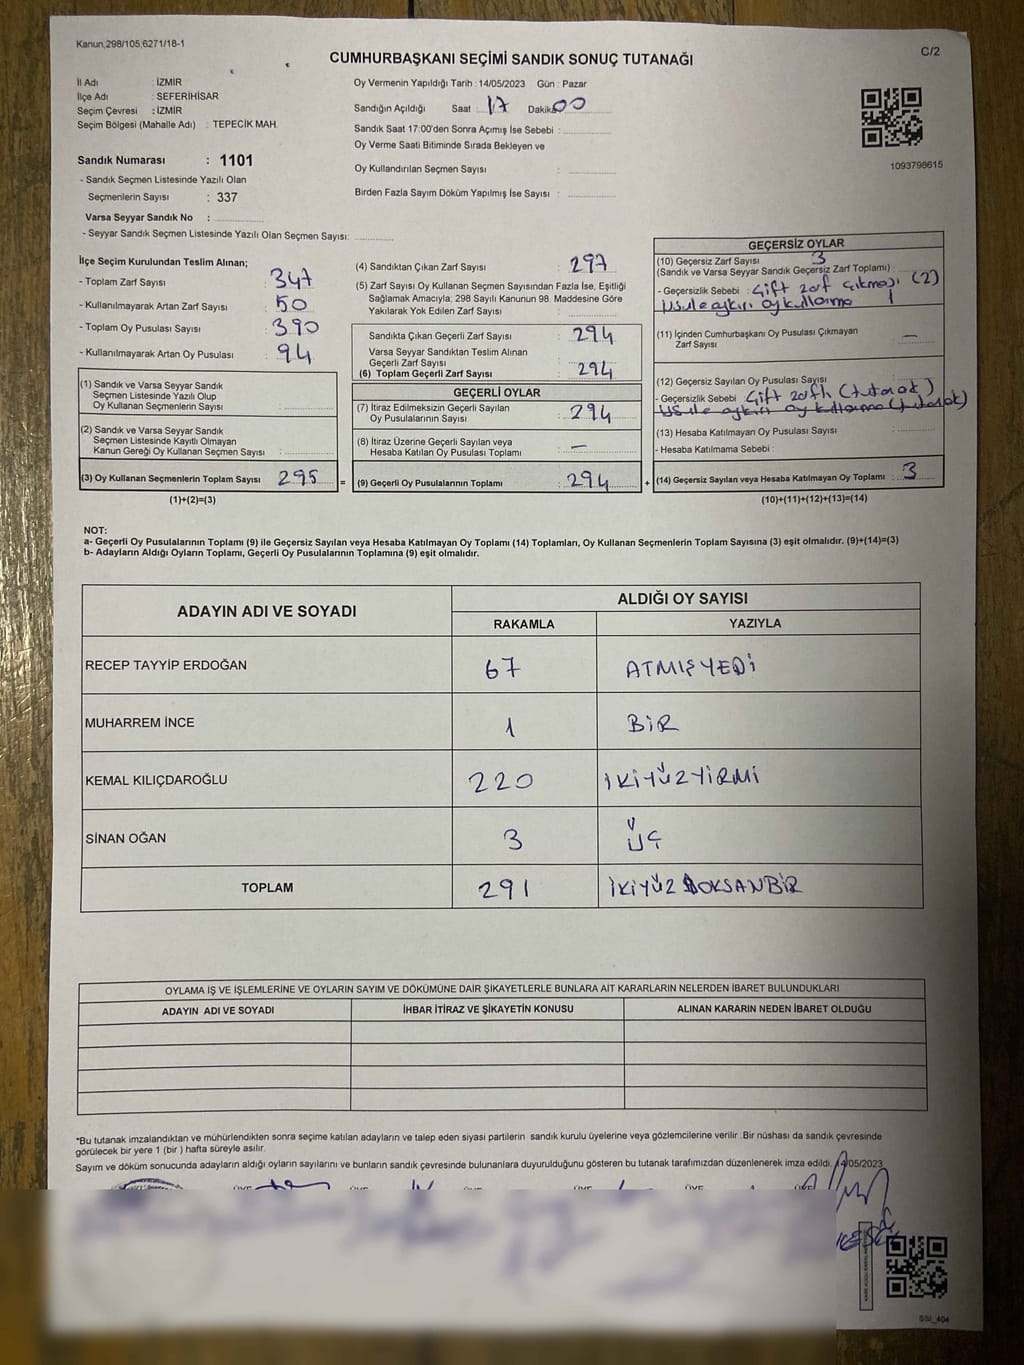 Kanun,298/105,6271/18-1
C/2
CUMHURBAŞKANI SEÇİMİ SANDIK SONUÇ TUTANAĞI
İl Adı : İZMİR
İlçe Adı : SEFERİHİSAR
Seçim Çevresi : İZMİR
Seçim Bölgesi (Mahalle Adı) : TEPECİK MAH.
Sandık Numarası : 1101
- Sandık Seçmen Listesinde Yazılı Olan
Seçmenlerin Sayısı : 337
Varsa Seyyar Sandık No :
- Seyyar Sandık Seçmen Listesinde Yazılı Olan Seçmen Sayısı:
Oy Vermenin Yapıldığı Tarih : 14/05/2023 Gün : Pazar
Sandığın Açıldığı Saat 17 Dakika 00
Sandık Saat 17:00'den Sonra Açımış İse Sebebi :
Oy Verme Saati Bitiminde Sırada Bekleyen ve
Oy Kullandırılan Seçmen Sayısı :
Birden Fazla Sayım Döküm Yapılmış İse Sayısı :
1093798615
İlçe Seçim Kurulundan Teslim Alınan;
- Toplam Zarf Sayısı : 347
- Kullanılmayarak Artan Zarf Sayısı : 50
- Toplam Oy Pusulası Sayısı : 390
- Kullanılmayarak Artan Oy Pusulası : 94
(1) Sandık ve Varsa Seyyar Sandık
Seçmen Listesinde Yazılı Olup
Oy Kullanan Seçmenlerin Sayısı :
(2) Sandık ve Varsa Seyyar Sandık
Seçmen Listesinde Kayıtlı Olmayan
Kanun Gereği Oy Kullanan Seçmen Sayısı :
(3) Oy Kullanan Seçmenlerin Toplam Sayısı : 295 =
(1)+(2)=(3)
(4) Sandıktan Çıkan Zarf Sayısı : 297
(5) Zarf Sayısı Oy Kullanan Seçmen Sayısından Fazla İse, Eşitliği
Sağlamak Amacıyla, 298 Sayılı Kanunun 98. Maddesine Göre
Yakılarak Yok Edilen Zarf Sayısı :
Sandıkta Çıkan Geçerli Zarf Sayısı : 294
Varsa Seyyar Sandıktan Teslim Alınan
Geçerli Zarf Sayısı :
(6) Toplam Geçerli Zarf Sayısı 294
GEÇERLİ OYLAR
(7) İtiraz Edilmeksizin Geçerli Sayılan
Oy Pusulalarının Sayısı : 294
(8) İtiraz Üzerine Geçerli Sayılan veya
Hesaba Katılan Oy Pusulası Toplamı : —
(9) Geçerli Oy Pusulalarının Toplamı : 294 +
GEÇERSİZ OYLAR
(10) Geçersiz Zarf Sayısı 3
(Sandık ve Varsa Seyyar Sandık Geçersiz Zarf Toplamı) :
- Geçersizlik Sebebi : Çift zarf çıkması (2)
Usule aykırı oy kullanma 1
(11) İçinden Cumhurbaşkanı Oy Pusulası Çıkmayan
Zarf Sayısı : —
(12) Geçersiz Sayılan Oy Pusulası Sayısı :
- Geçersizlik Sebebi Çift zarflı (tutanak)
Usule aykırı oy kullanma (tutanak)
(13) Hesaba Katılmayan Oy Pusulası Sayısı :
- Hesaba Katılmama Sebebi :
(14) Geçersiz Sayılan veya Hesaba Katılmayan Oy Toplamı : 3
(10)+(11)+(12)+(13)=(14)
NOT:
a- Geçerli Oy Pusulalarının Toplamı (9) ile Geçersiz Sayılan veya Hesaba Katılmayan Oy Toplamı (14) Toplamları, Oy Kullanan Seçmenlerin Toplam Sayısına (3) eşit olmalıdır. (9)+(14)=(3)
b- Adayların Aldığı Oyların Toplamı, Geçerli Oy Pusulalarının Toplamına (9) eşit olmalıdır.
ADAYIN ADI VE SOYADI
ALDIĞI OY SAYISI
RAKAMLA YAZIYLA
RECEP TAYYİP ERDOĞAN 67 ATMIŞYEDİ
MUHARREM İNCE 1 BİR
KEMAL KILIÇDAROĞLU 220 İKİYÜZYİRMİ
SİNAN OĞAN 3 ÜÇ
TOPLAM 291 İKİYÜZDOKSANBİR
OYLAMA İŞ VE İŞLEMLERİNE VE OYLARIN SAYIM VE DÖKÜMÜNE DAİR ŞİKAYETLERLE BUNLARA AİT KARARLARIN NELERDEN İBARET BULUNDUKLARI
ADAYIN ADI VE SOYADI İHBAR İTİRAZ VE ŞİKAYETİN KONUSU ALINAN KARARIN NEDEN İBARET OLDUĞU
*Bu tutanak imzalandıktan ve mühürlendikten sonra seçime katılan adayların ve talep eden siyasi partilerin sandık kurulu üyelerine veya gözlemcilerine verilir. Bir nüshası da sandık çevresinde
görülecek bir yere 1 (bir ) hafta süreyle asılır.
Sayım ve döküm sonucunda adayların aldığı oyların sayılarını ve bunların sandık çevresinde bulunanlara duyurulduğunu gösteren bu tutanak tarafımızdan düzenlenerek imza edildi. 14/05/2023
SSİ_404